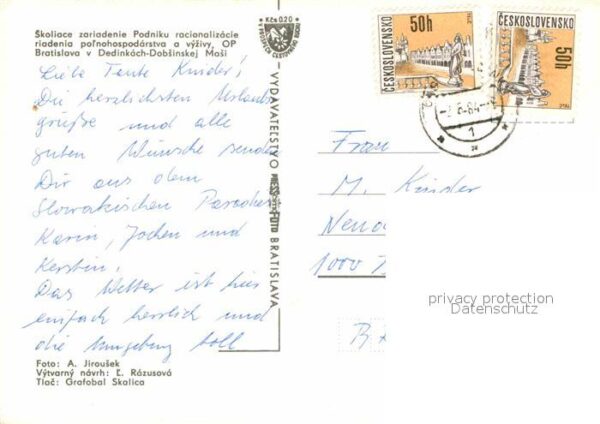 Školiace zariadenie Podniku racionalizácie
riadenia poľnohospodárstva a výživy, OP
Bratislava v Dedinkách-Dobšinskej Maši
Kčs 0.20
Liebe Tante Kinder!
Die herzlichsten Urlaubs
grüße und alle
guten Wünsche senden
Dir aus dem
Slowakischen Paradies
Karin, Jochen und
Kerstin.
Das Wetter ist hier
einfach herrlich und
die Umgebung toll
Foto: A. Jiroušek
Výtvarný návrh: Ľ. Rázusová
Tlač: Grafobal Skalica
VYDAVATEĽSTVO PRESSFOTO BRATISLAVA
ČESKOSLOVENSKO
50h
ČESKOSLOVENSKO
50h
Frau
M. Kinder
1000
privacy protection
Datenschutz